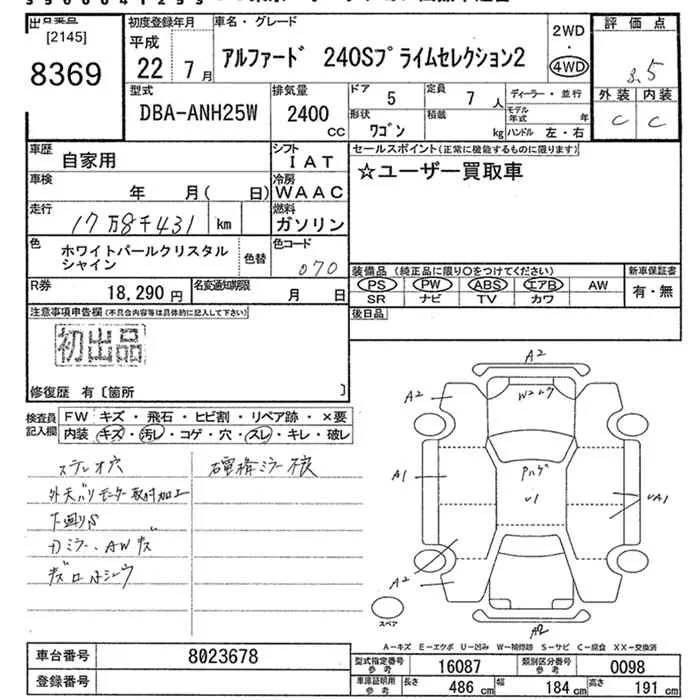 出品番号
[2145]
8369
初度登録年月
平成
22 7月
車名・グレード
アルファード 240Sプライムセレクション2
2WD
・
4WD
評価点
3.5
外装 内装
C C
型式
DBA-ANH25W
排気量
2400
CC
ドア 5
定員 7人
形状 ワゴン
積載 kg
ディーラー・並行
モデル年式 年
ハンドル 左・右
車歴 自家用
シフト IAT
車検 年 月( 日)
冷房 WAAC
走行 17万8千431 km
燃料 ガソリン
色 ホワイトパールクリスタル
シャイン
色替
色コード
070
R券 18,290円
名変通知期限 月 日
セールスポイント(正常に機能するものに限ります)
☆ユーザー買取車
装備品 (純正品に限り○をつけてください)
新車保証書
PS PW ABS エアB AW
有・無
SR ナビ TV カワ
後日品
注意事項申告欄(不具合内容等は具体的に記入して下さい)
初出品
修復歴 有〔箇所 〕
検査員
記入欄
FW キズ・飛石・ヒビ割・リペア跡・×要
内装 キズ・汚レ・コゲ・穴・スレ・キレ・破レ
ステレオ穴
外天バリモーター取付加工
下廻りS
A2
A2
A1
UA1
A2
A2
U1
スペア
A-キズ E-エクボ U-凹み W-補修跡 S-サビ C-腐食 XX-交換済
車台番号 8023678
登録番号
型式指定番号
参考
16087
類別区分番号
参考
0098
車庫証明用
参考
長さ 486cm 幅 184cm 高さ 191cm